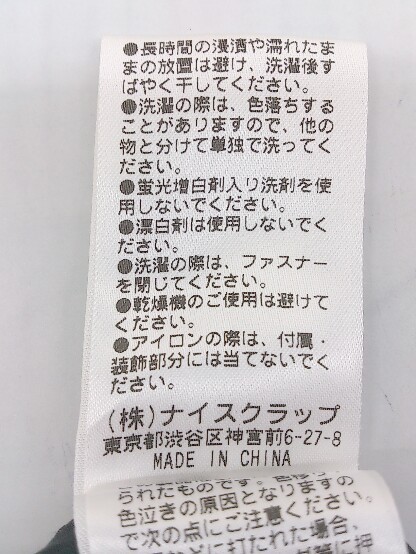 ●長時間の浸漬や濡れたま
まの放置は避け、洗濯後す
ばやく干してください。
●洗濯の際は、色落ちする
ことがありますので、他の
物と分けて単独で洗ってく
ださい。
●蛍光増白剤入り洗剤を使
用しないでください。
●漂白剤は使用しないでく
ださい。
●洗濯の際は、ファスナー
を閉じてください。
●乾燥機のご使用は避けて
ください。
●アイロンの際は、付属・
装飾部分には当てないでく
ださい。
(株)ナイスクラップ
東京都渋谷区神宮前6-27-8
MADE IN CHINA
られたものです。色移り
色泣きの原因となりますの
で次の点にご注意ください。
打たれた場合、